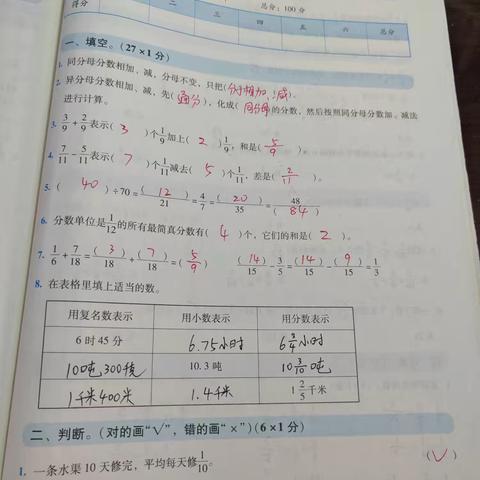 总分：100分
得分 二 三 四 五 六 总分
一、填空。(27×1分)
1. 同分母分数相加、减，分母不变，只把(分子相加、减)。
2. 异分母分数相加、减，先(通分)，化成(同分母)的分数，然后按照同分母分数加、减法
进行计算。
3. 3/9+2/9表示(3)个1/9加上(2)个1/9，和是(5/9)。
4. 7/11-5/11表示(7)个1/11减去(5)个1/11，差是(2/11)。
5. (40)÷70=(12)/21=4/7=(20)/35=48/(84)
6. 分数单位是1/12的所有最简真分数有(4)个，它们的和是(2)。
7. 1/6+7/18=(3)/18+(7)/18=(5/9) (14)/15-3/5=(14)/15-(9)/15=1/3
8. 在表格里填上适当的数。
用复名数表示 用小数表示 用分数表示
6时45分 6.75小时 6 3/4小时
10吨300千克 10.3吨 10 3/10吨
1千米400米 1.4千米 1 2/5千米
二、判断。(对的画“√”，错的画“×”)(6×1分)
1. 一条水渠10天修完，平均每天修1/10。 (√)